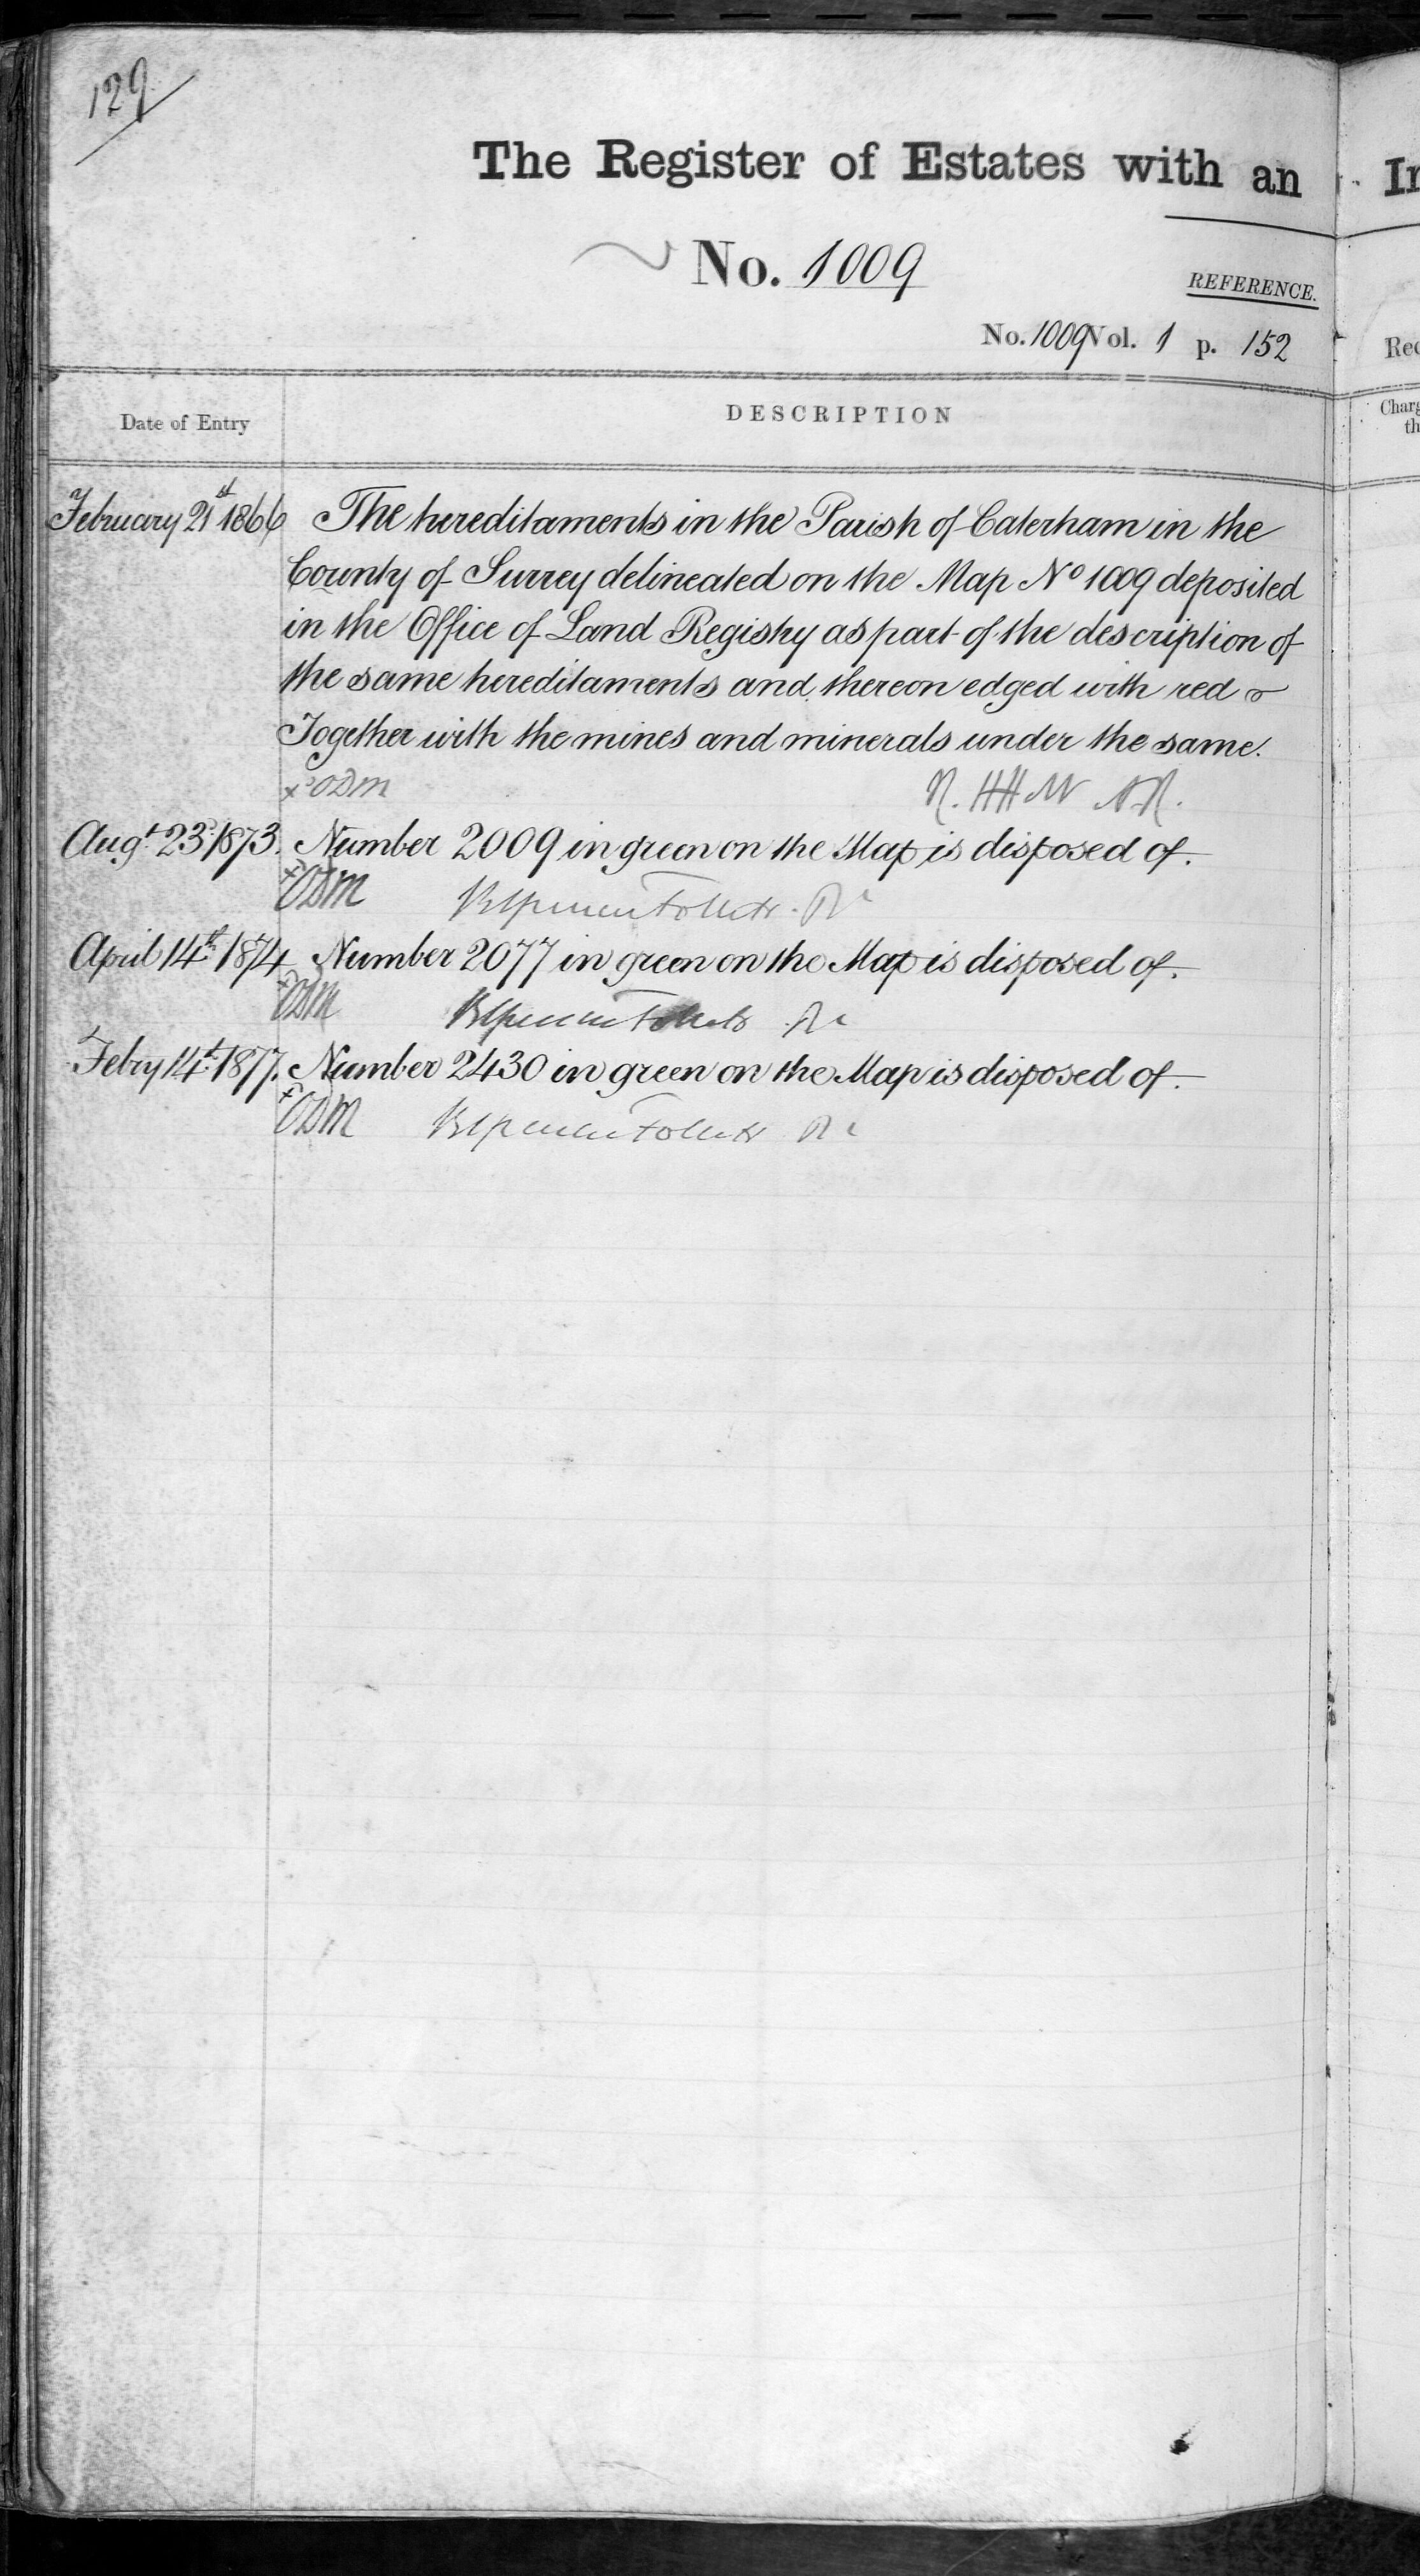 129
The Register of Estates with an In
No. 1009
REFERENCE.
No. 1009 Vol. 1 p. 152
Rec
Date of Entry
DESCRIPTION
Charg
th
February 21st 1866 The hereditaments in the Parish of Caterham in the
County of Surrey delineated on the Map No 1009 deposited
in the Office of Land Registry as part of the description of
the same hereditaments and thereon edged with red
Together with the mines and minerals under the same.
x ODM
Augt. 23d 1873. Number 2009 in green on the Map is disposed of.
x ODM
April 14th 1874 Number 2077 in green on the Map is disposed of.
x ODM
Febry 14th 1877. Number 2430 in green on the Map is disposed of.
x ODM